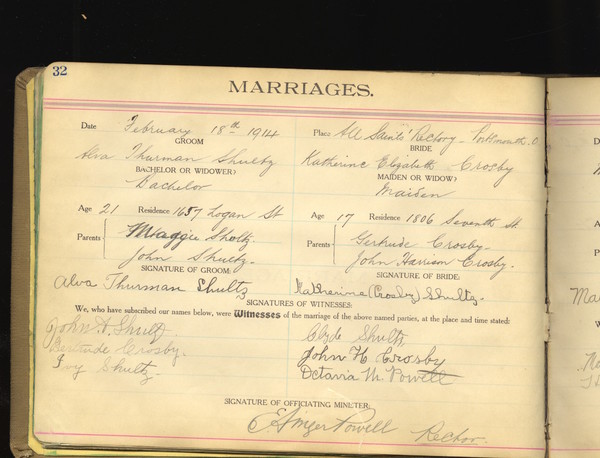 32
MARRIAGES.
Date February 18th 1914 Place All Saints' Rectory - Portsmouth. O
GROOM BRIDE
Alva Thurman Shultz Katherine Elizabeth Crosby
BACHELOR OR WIDOWER) MAIDEN OR WIDOW)
Bachelor Maiden
Age 21 Residence 1657 Logan St Age 17 Residence 1806 Seventh St.
Parents Maggie Shultz. Parents Gertrude Crosby.
John Shultz. John Harrison Crosby.
SIGNATURE OF GROOM: SIGNATURE OF BRIDE:
Alva Thurman Shultz Katherine (Crosby) Shultz.
SIGNATURES OF WITNESSES:
We, who have subscribed our names below, were Witnesses of the marriage of the above named parties, at the place and time stated:
John Shultz Clyde Shultz
Gertrude Crosby. John H Crosby
Ivy Shultz Octavia M. Powell
SIGNATURE OF OFFICIATING MINISTER:
Powell Rector.